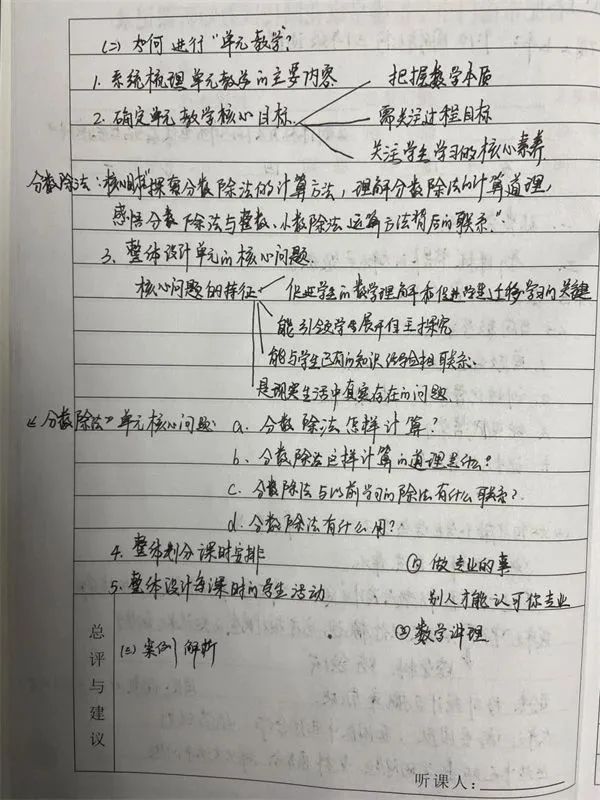 (二) 如何进行“单元教学”?
1. 系统梳理单元教学的主要内容
把握数学本质
2. 确定单元教学核心目标
需关注过程目标
关注学生学习的核心素养
分数除法:“核心目标”探索分数除法的计算方法,理解分数除法的计算道理,
感悟分数除法与整数、小数除法运算方法背后的联系。”
3. 整体设计单元的核心问题.
核心问题的特征
促进学生的数学理解和促进学生迁移学习的关键
能引领学生展开自主探究
能与学生已有的知识经验相联系.
是现实生活中真实存在的问题.
《分数除法》单元核心问题:
a. 分数除法怎样计算?
b. 分数除法这样计算的道理是什么?
c. 分数除法与以前学习的除法有什么联系?
d. 分数除法有什么用?
4. 整体划分课时安排
① 做专业的事
5. 整体设计每课时的学生活动
别人才能认可你专业
② 数学讲理
总评与建议
(三) 案例解析
听课人: